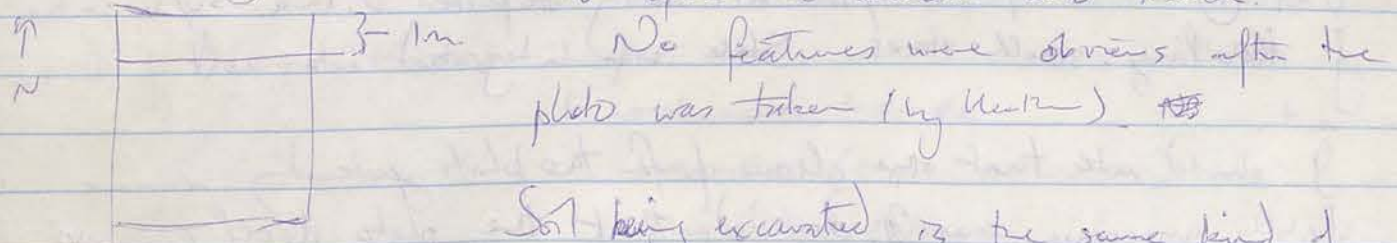 ↑
N
1m
No features were obvious after the
photo was taken (by
Soil being excavated is the same kind of